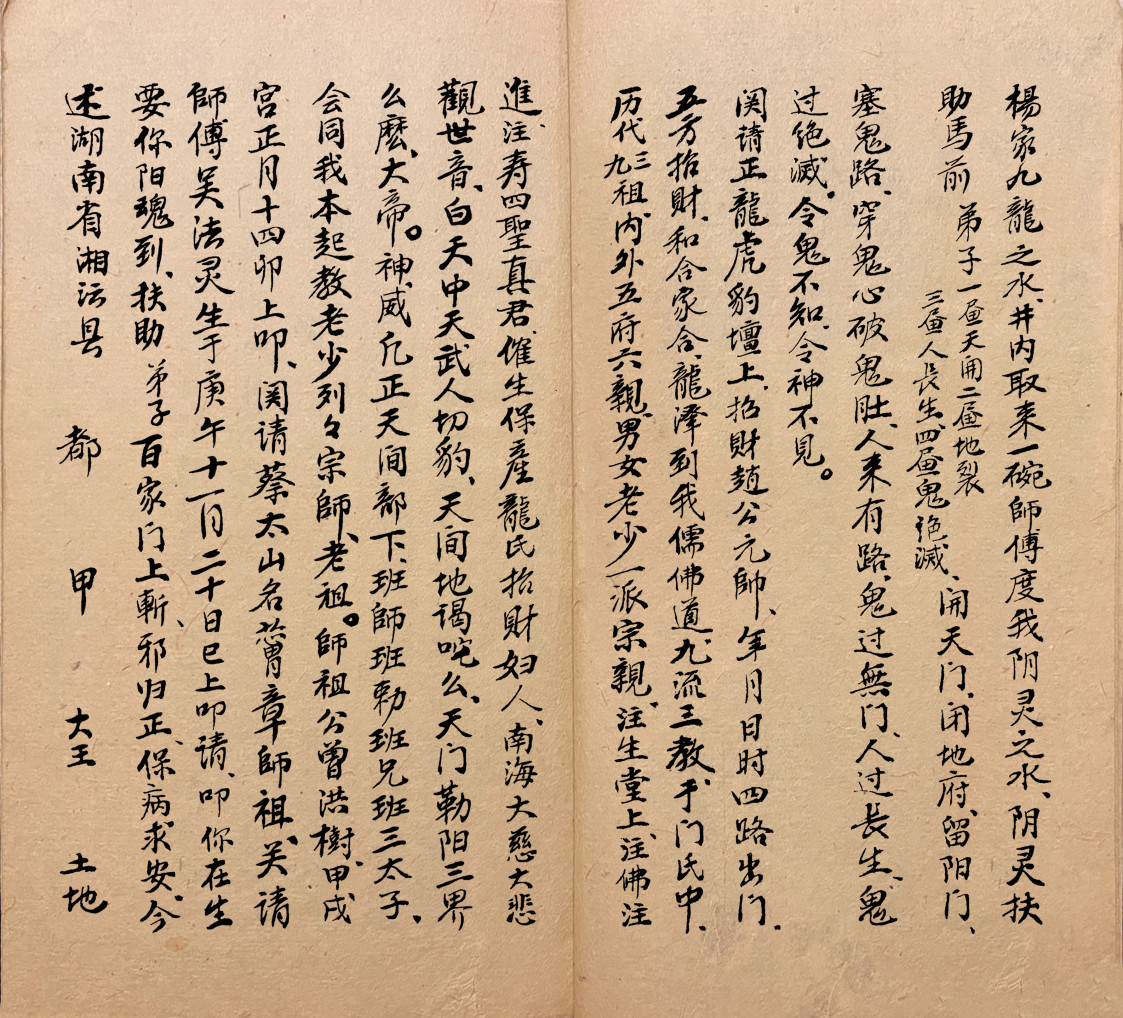 楊家九龍之水、井内取来一碗師傅度我阴灵之水、阴灵扶
助馬前 弟子一㫘天開二㫘地裂
三㫘人長生、四㫘鬼绝滅、開天门、闭地府、留阳门、
塞鬼路、穿鬼心破鬼肚、人来有路、鬼过無门、人过長生、鬼
过绝滅。令鬼不知、令神不見。
関请正龍虎豹壇上、招財趙公元帥、年月日时四路出门、
五方招財、和合家合、龍澤到我儒佛道、九流三教、于门氏中、
历代九三祖、内外五府六親、男女老少一派宗親、注生堂上、注佛注
進、注寿四聖真君、催生保產龍氏招財妇人、南海大慈大悲
觀世音、白天中天武人切豹、天间地谒咤么、天门勒阳三界
么麽、大帝。神、威凡正天间部下、班師班勅班兄班三太子、
会同我本起教老少列々宗師、老祖。師祖公曾洪樹、甲戌
宫正月十四卯上叩、関请蔡太山名章師祖、关请
師傅吴法灵生于庚午十一月二十日巳上叩请、叩你在生
要你阳魂到、扶助 弟子百家门上斬、邪归正、保病求安、今
述湖南省湘沄县 都 甲 大王 土地